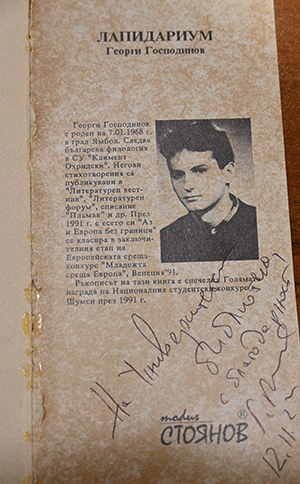 ЛАПИДАРИУМ
Георги Господинов
Георги Господинов
е роден на 7.01.1968 г.
в град Ямбол. Следва
българска филология
в СУ "Климент
Охридски". Негови
стихотворения са
публикувани в
"Литературен вест-
ник", "Литературен
форум", списание
"Пламък" и др. През
1991 г. с есето си "Аз
и Европа без граници"
се класира в заключи-
телния етап на
Европейската среща-
конкурс "Младежта
среща Европа", Венеция'91.
Ръкописът на тази книга е спечелил Голямата
награда на Националния студентски конкурс
Шумен през 1991 г.
На Университетска
библиотека
с благодарност
modus
СТОЯНОВ ®